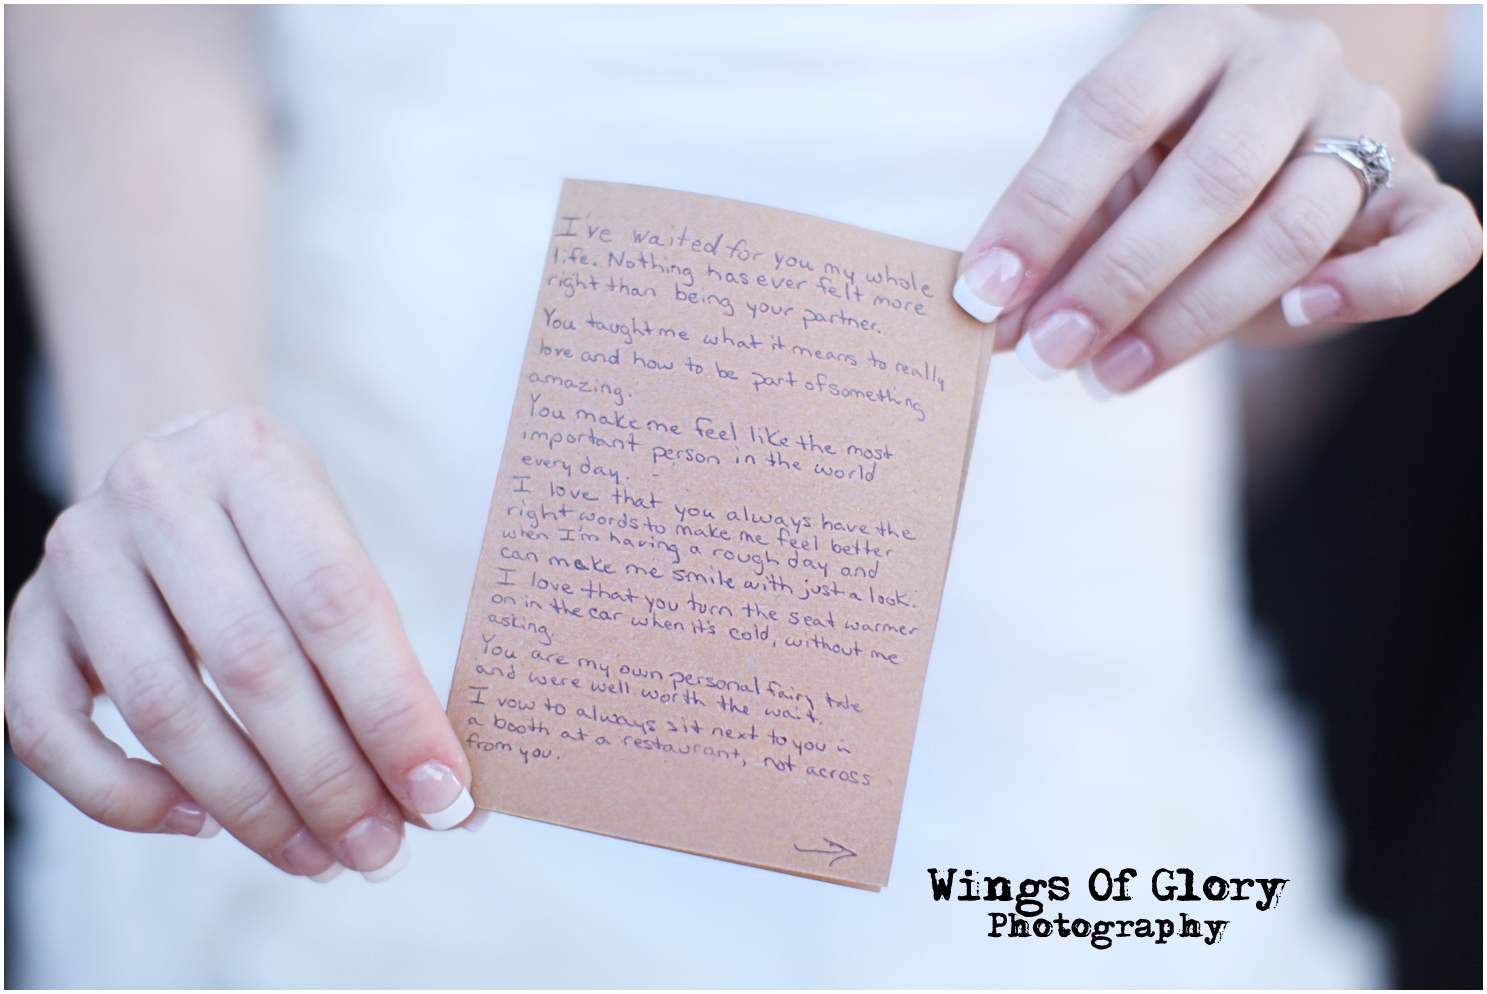 I've waited for you my whole
life. Nothing has ever felt more
right than being your partner.
You taught me what it means to really
love and how to be part of something
amazing.
You make me feel like the most
important person in the world
every day.
I love that you always have the
right words to make me feel better
when I'm having a rough day and
can make me smile with just a look.
I love that you turn the seat warmer
on in the car when it's cold, without me
asking.
You are my own personal fairy tale
and were well worth the wait.
I vow to always sit next to you in
a booth at a restaurant, not across
from you.
→
Wings Of Glory
Photography